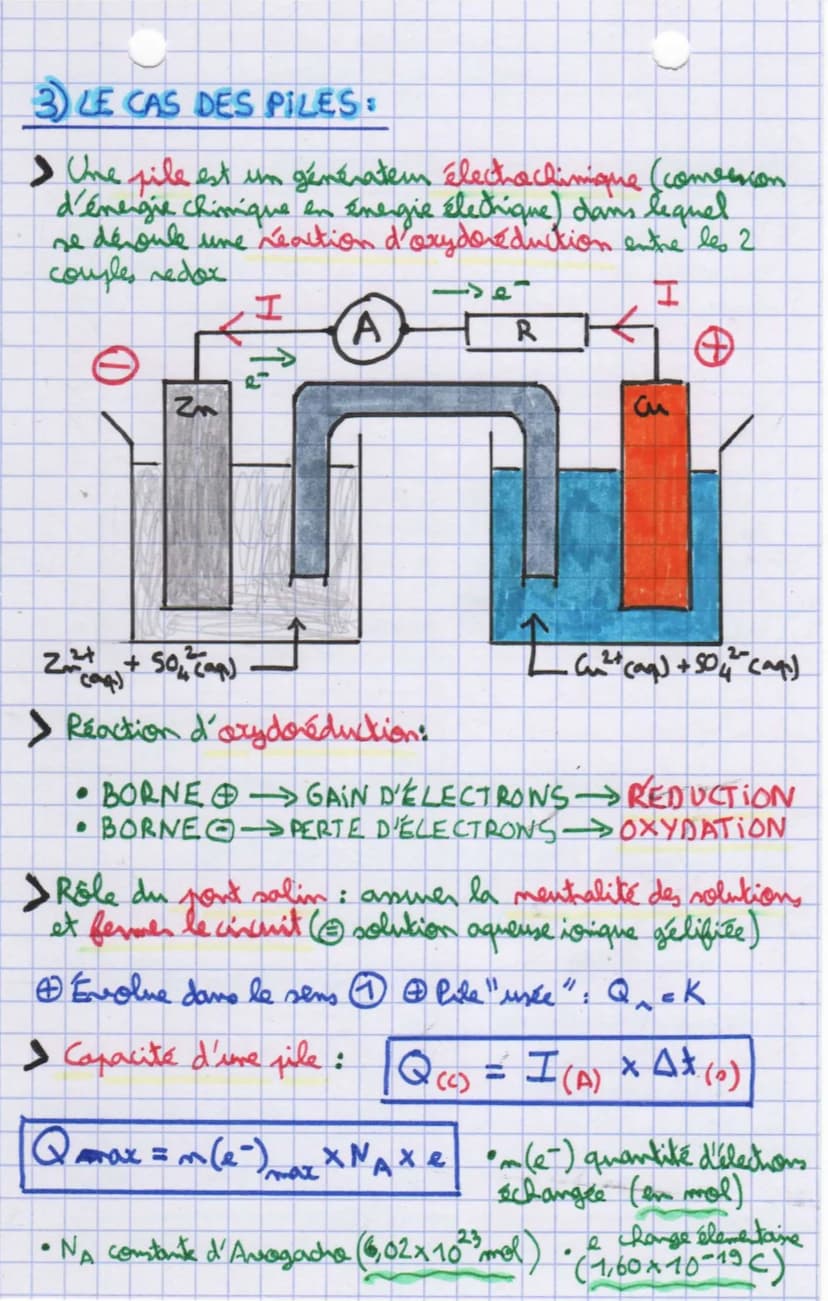 3) LE CAS DES PILES :
> Une pile est un générateur électrochimique (conversion
d'énergie chimique en énergie électrique) dans lequel
se déroule une réaction d'oxydoréduction entre les 2
couples redox
→ e⁻
I
I
A
R
⊖
⊕
e⁻ →
Zn
Cu
Zn²⁺(aq) + SO₄²⁻(aq)
Cu²⁺(aq) + SO₄²⁻(aq)
> Réaction d'oxydoréduction :
• BORNE ⊕ → GAIN D'ÉLECTRONS → RÉDUCTION
• BORNE ⊖ → PERTE D'ÉLECTRONS → OXYDATION
> Rôle du pont salin : assurer la neutralité des solutions
et fermer le circuit (= solution aqueuse ionique gélifiée)
⊕ Évolue dans le sens ① ⊕ Pile "usée" : Qr = K
> Capacité d'une pile :
Q(C) = I(A) × Δt(s)
Qmax = n(e⁻)max × NA × e
• n(e⁻) quantité d'électrons
échangée (en mol)
• NA constante d'Avogadro (6,02×10²³ mol)
• e charge élementaire
(1,60×10⁻¹⁹ C)